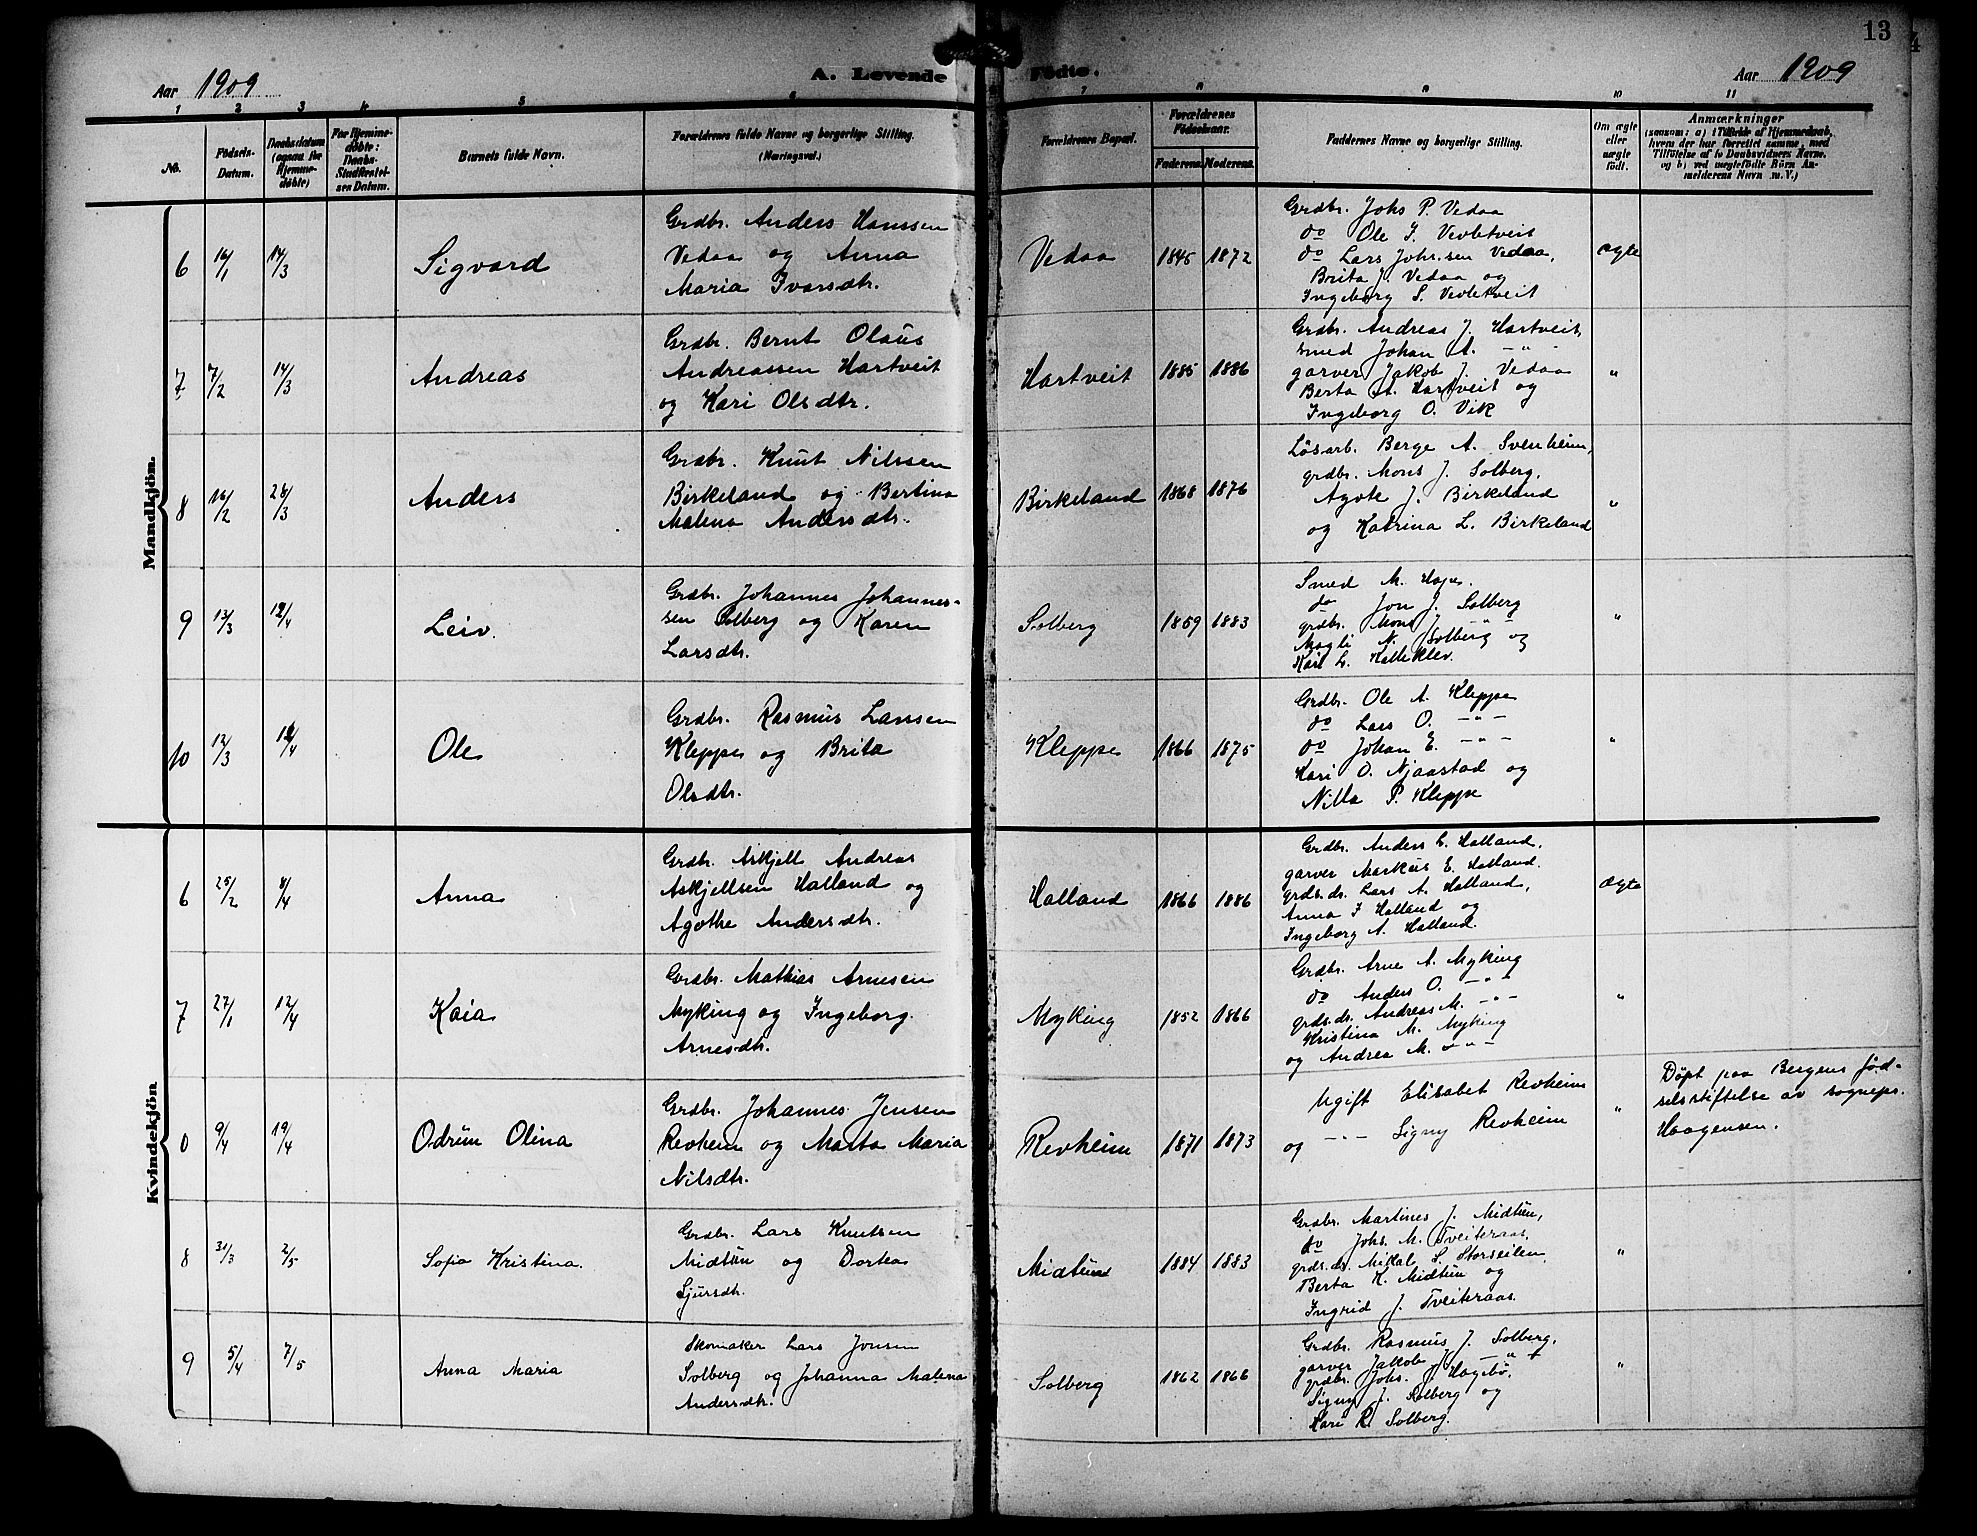 13
Aar 1909
A. Levende Födte.
Aar 1909
1 2 3 4 5 6 7 8 9 10 11
No.
Födsels-
Datum.
Daabsdatum
(ogsaa for
Hjemme-
döbte)
For Hjemme-
döbte:
Daabs-
Stadfæstel-
ses Datum.
Barnets fulde Navn.
Forældrenes fulde Navne og borgerlige Stilling.
(Næringsvei.)
Forældrenes Bopæl.
Forældrenes
Födselsaar.
Faderens. Moderens.
Faddernes Navne og borgerlige Stilling.
Om ægte
eller
uægte
födt.
Anmærkninger
(saasom: a) i Tilfælde af Hjemmedaab,
hvem der har forrettet samme, med
Tilföielse af to Daabsvidners Navne,
og b) ved uægtefödte Börn An-
melderens Navn m. V.)
Mandkjön.
6 16/1 14/3 Sigvard
Grdbr. Anders Hanssen
Vedaa og Anna
Maria Ivarsdtr.
Vedaa 1845 1872
Grdbr. Johs P. Vedaa
do Ole I. Vevletveit
do Lars Johs.sen Vedaa,
Brita J. Vedaa og
Ingeborg S. Vevletveit
ægte
7 7/2 14/3 Andreas
Grdbr. Bernt Olaus
Andreassen Hartveit
og Kari Olsdtr.
Hartveit 1885 1886
Grdbr. Andreas J. Hartveit,
smed Johan A. - " -
garver Jakob J. Vedaa
Berta A. Hartveit og
Ingeborg O. Vik
"
8 16/2 28/3 Anders
Grdbr. Knut Nilssen
Birkeland og Bertina
Malena Andersdtr.
Birkeland 1868 1876
Lösarb. Berge A. Svenheim,
grdbr. Mons J. Solberg,
Agote J. Birkeland
og Katrina L. Birkeland
"
9 13/3 12/4 Leiv.
Grdbr. Johannes Johannes-
sen Solberg og Karen
Larsdtr.
Solberg 1859 1883
Smed M. Hope.
do Jon J. Solberg
grdbr. Mons J. - " -
Magli N. Solberg og
Kari L. Halleklev.
"
10 12/3 12/4 Ole
Grdbr. Rasmus Larssen
Kleppe og Brita
Olsdtr.
Kleppe 1866 1875
Grdbr. Ole A. Kleppe
do Lars O. - " -
do Johan E. - " -
Kari O. Njaastad og
Nilla P. Kleppe
"
Kvindekjön
6 25/2 8/4 Anna
Grdbr. Askjell Andreas
Askjellsen Halland og
Agothe Andersdtr.
Halland 1866 1886
Grdbr. Anders L. Halland,
garver Markus E. Halland.
grds.dr. Lars A. Halland,
Anna I Halland og
Ingeborg A. Halland.
ægte
7 27/1 12/4 Kaia
Grdbr. Mathias Arnesen
Myking og Ingeborg
Arnesdtr.
Myking 1852 1866
Grdbr. Arne A. Myking
do Anders O. - " -
grds.dr. Andreas M. - " -
Kristina M. Myking
og Andrea M. - " -
"
0 9/4 19/4 Odrun Olina
Grdbr. Johannes Jensen
Revheim og Marta Maria
Nilsdtr.
Revheim 1871 1873
Ugift Elisabet Revheim
og - " - Signy Revheim
"
Döpt paa Bergens fød-
selsstiftelse av sognepr.
Haagensen.
8 31/3 2/5 Sofia Kristina.
Grdbr. Lars Knutsen
Midtun og Dortea
Sjursdtr.
Midtun 1884 1883
Grdbr. Martines J. Midtun,
do Johs. M. Tveiteraas,
grds.dr. Mikal S. Storseilen,
Berta K. Midtun og
Ingrid J. Tveiteraas.
"
9 5/4 7/5 Anna Maria
Skomaker Lars Jonsen
Solberg og Johanna Malena
Andersdtr.
Solberg 1862 1866
Grdbr. Rasmus J. Solberg,
garver Jakob J. - " -
grdbr. Johs. J. Hagebö,
Signy J. Solberg og
Kari R. Solberg.
"